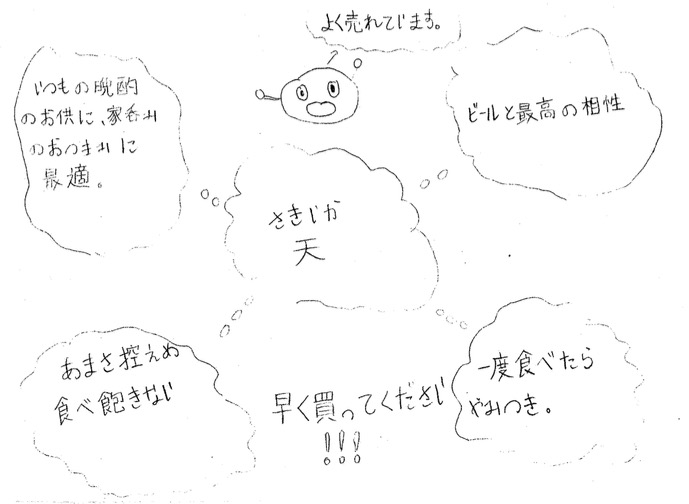 よく売れています。
いつもの晩酌
のお供に、家呑み
のおつまみに
最適。
ビールと最高の相性
さきいか
天
あまさ控えめ
食べ飽きない
早く買ってください
!!!
一度食べたら
やみつき。